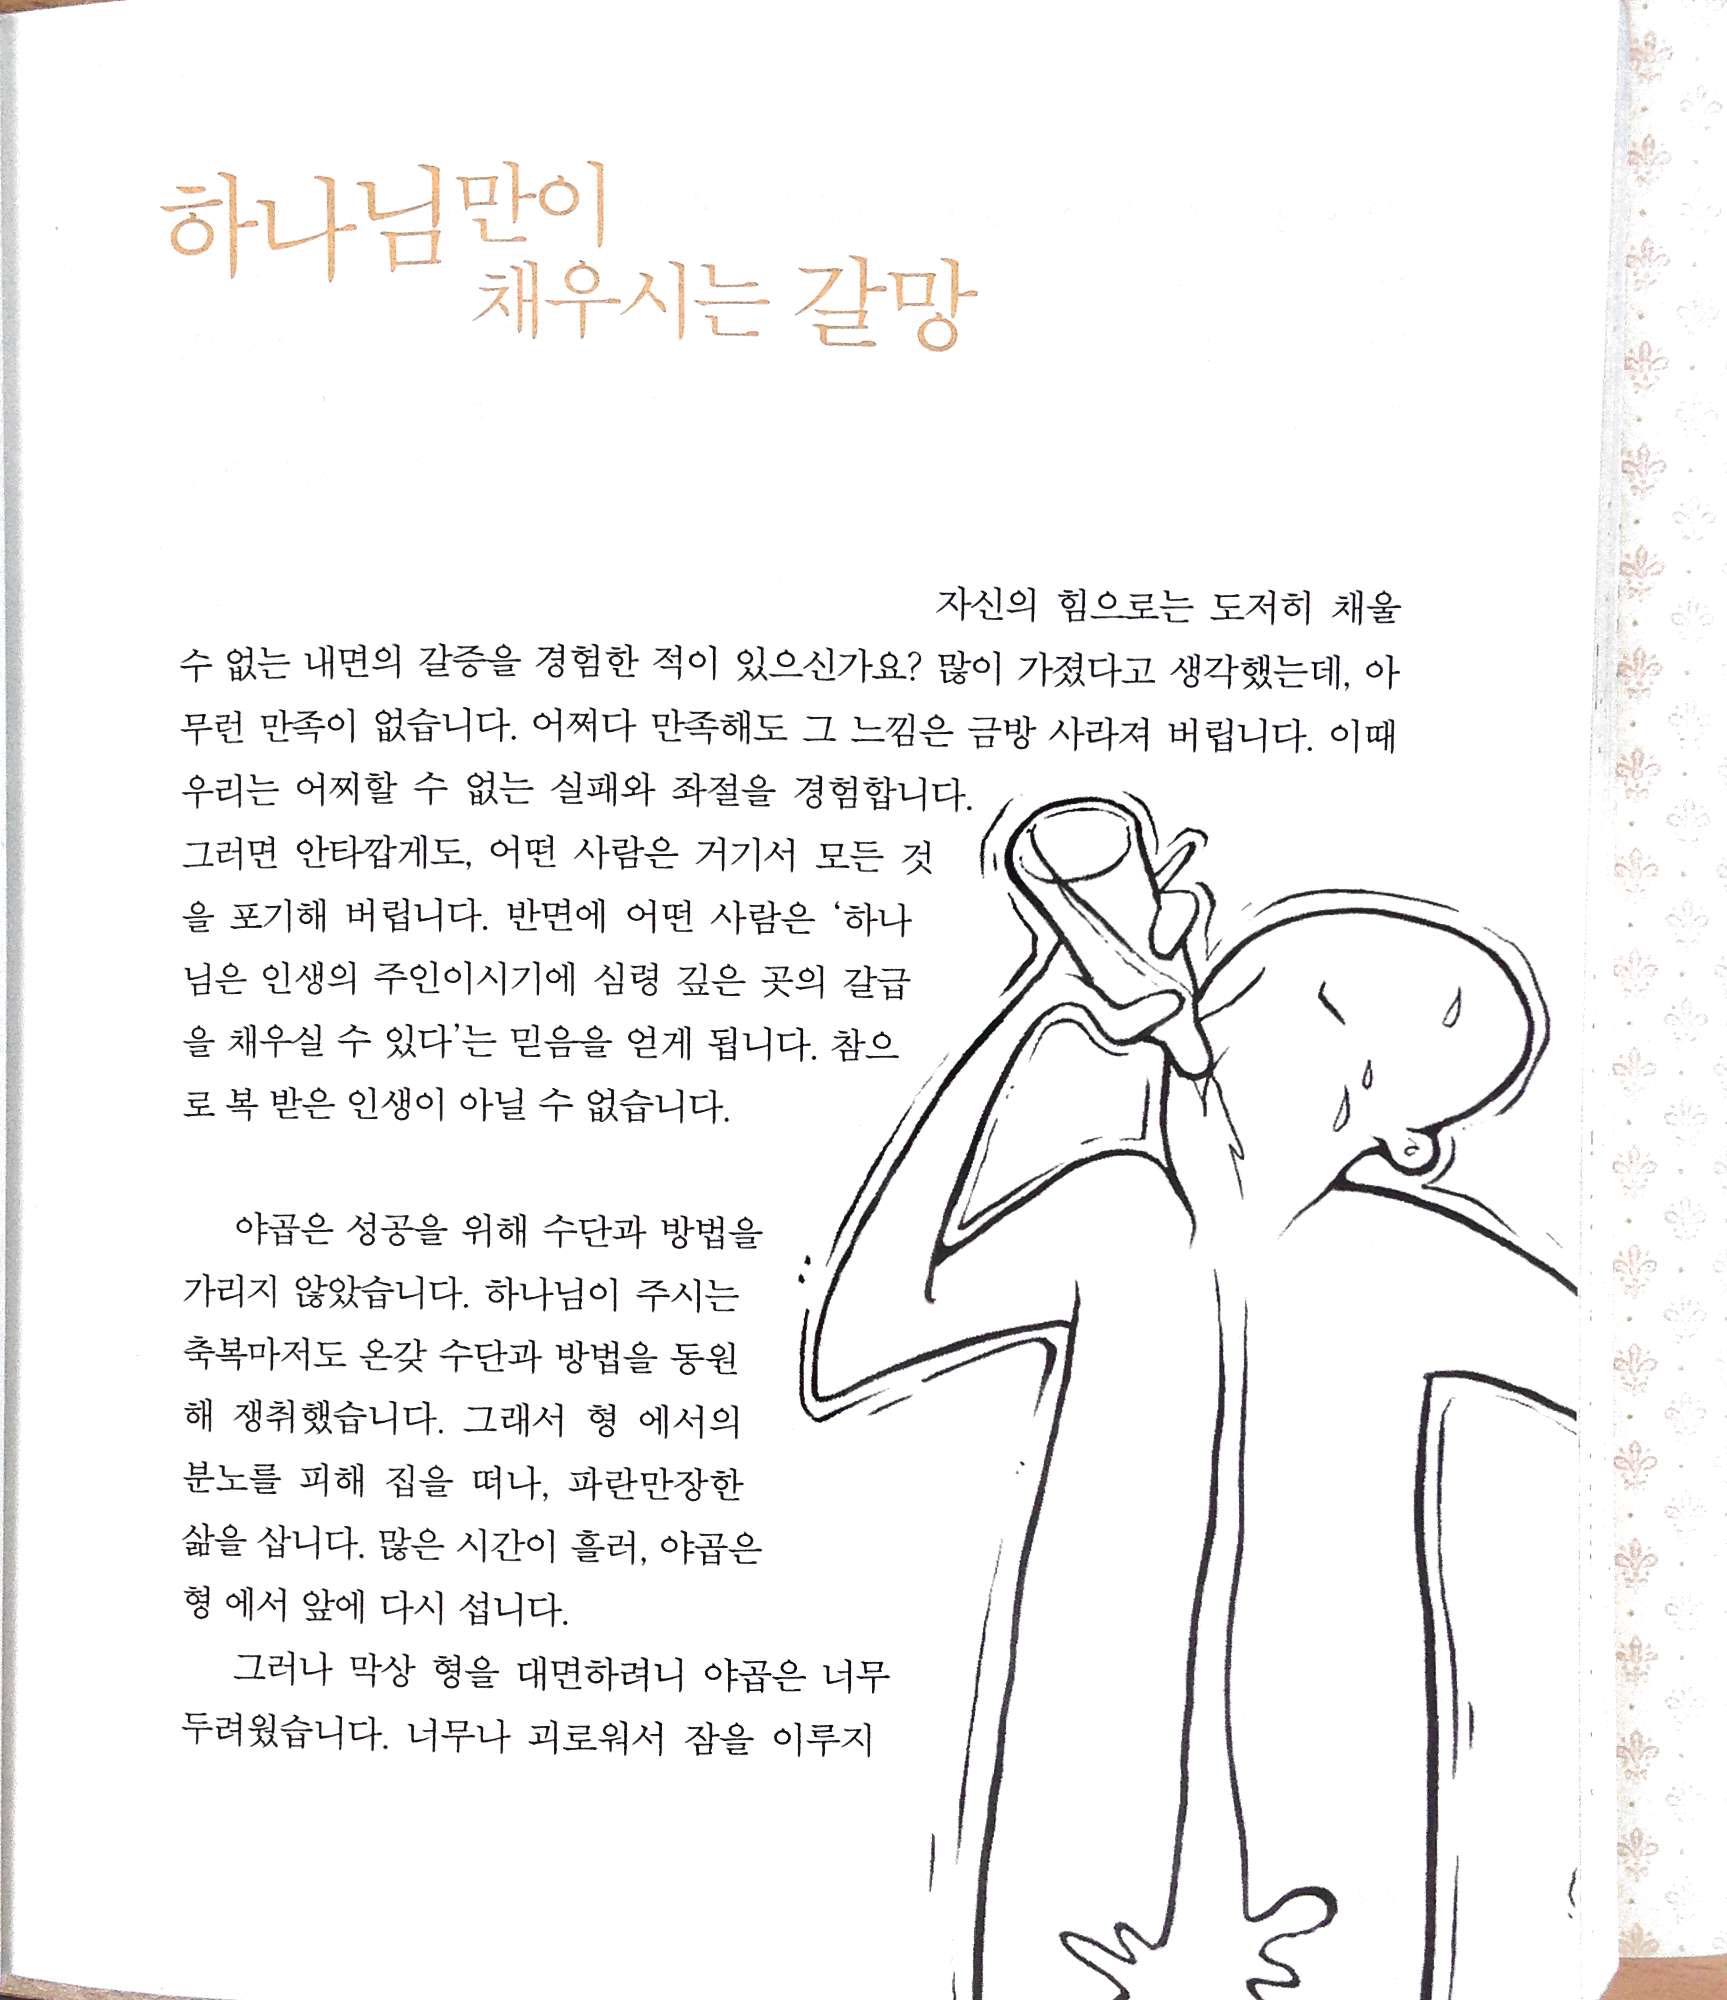 하나님만이
채우시는 갈망
자신의 힘으로는 도저히 채울
수 없는 내면의 갈증을 경험한 적이 있으신가요? 많이 가졌다고 생각했는데, 아
무런 만족이 없습니다. 어쩌다 만족해도 그 느낌은 금방 사라져 버립니다. 이때
우리는 어찌할 수 없는 실패와 좌절을 경험합니다.
그러면 안타깝게도, 어떤 사람은 거기서 모든 것
을 포기해 버립니다. 반면에 어떤 사람은 ‘하나
님은 인생의 주인이시기에 심령 깊은 곳의 갈급
을 채우실 수 있다’는 믿음을 얻게 됩니다. 참으
로 복 받은 인생이 아닐 수 없습니다.
야곱은 성공을 위해 수단과 방법을
가리지 않았습니다. 하나님이 주시는
축복마저도 온갖 수단과 방법을 동원
해 쟁취했습니다. 그래서 형 에서의
분노를 피해 집을 떠나, 파란만장한
삶을 삽니다. 많은 시간이 흘러, 야곱은
형 에서 앞에 다시 섭니다.
그러나 막상 형을 대면하려니 야곱은 너무
두려웠습니다. 너무나 괴로워서 잠을 이루지